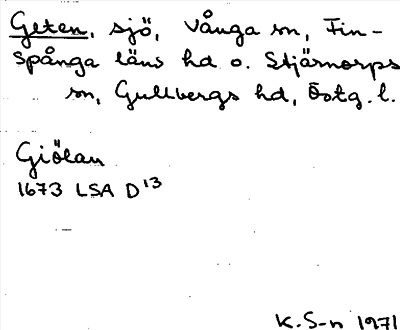 Geten, sjö, Vånga sn, Fin-
spånga läns hd o. Stjärnorps
sn, Gullbergs hd, Östg. l.
Giölan
1673 LSA D13
K. S-n 1971